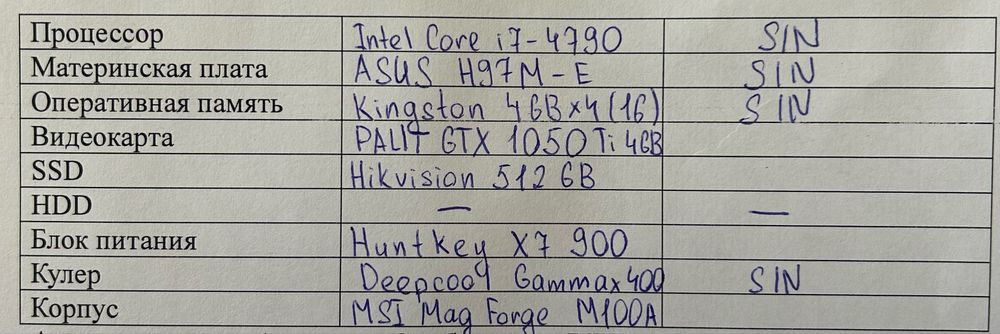 Процессор Intel Core i7-4790 SIN
Материнская плата ASUS H97M-E SIN
Оперативная память Kingston 4GBx4(16) SIN
Видеокарта PALIT GTX 1050Ti 4GB
SSD Hikvision 512 GB
HDD — —
Блок питания Huntkey X7 900
Кулер Deepcool Gammax400 SIN
Корпус MSI Mag Forge M100A